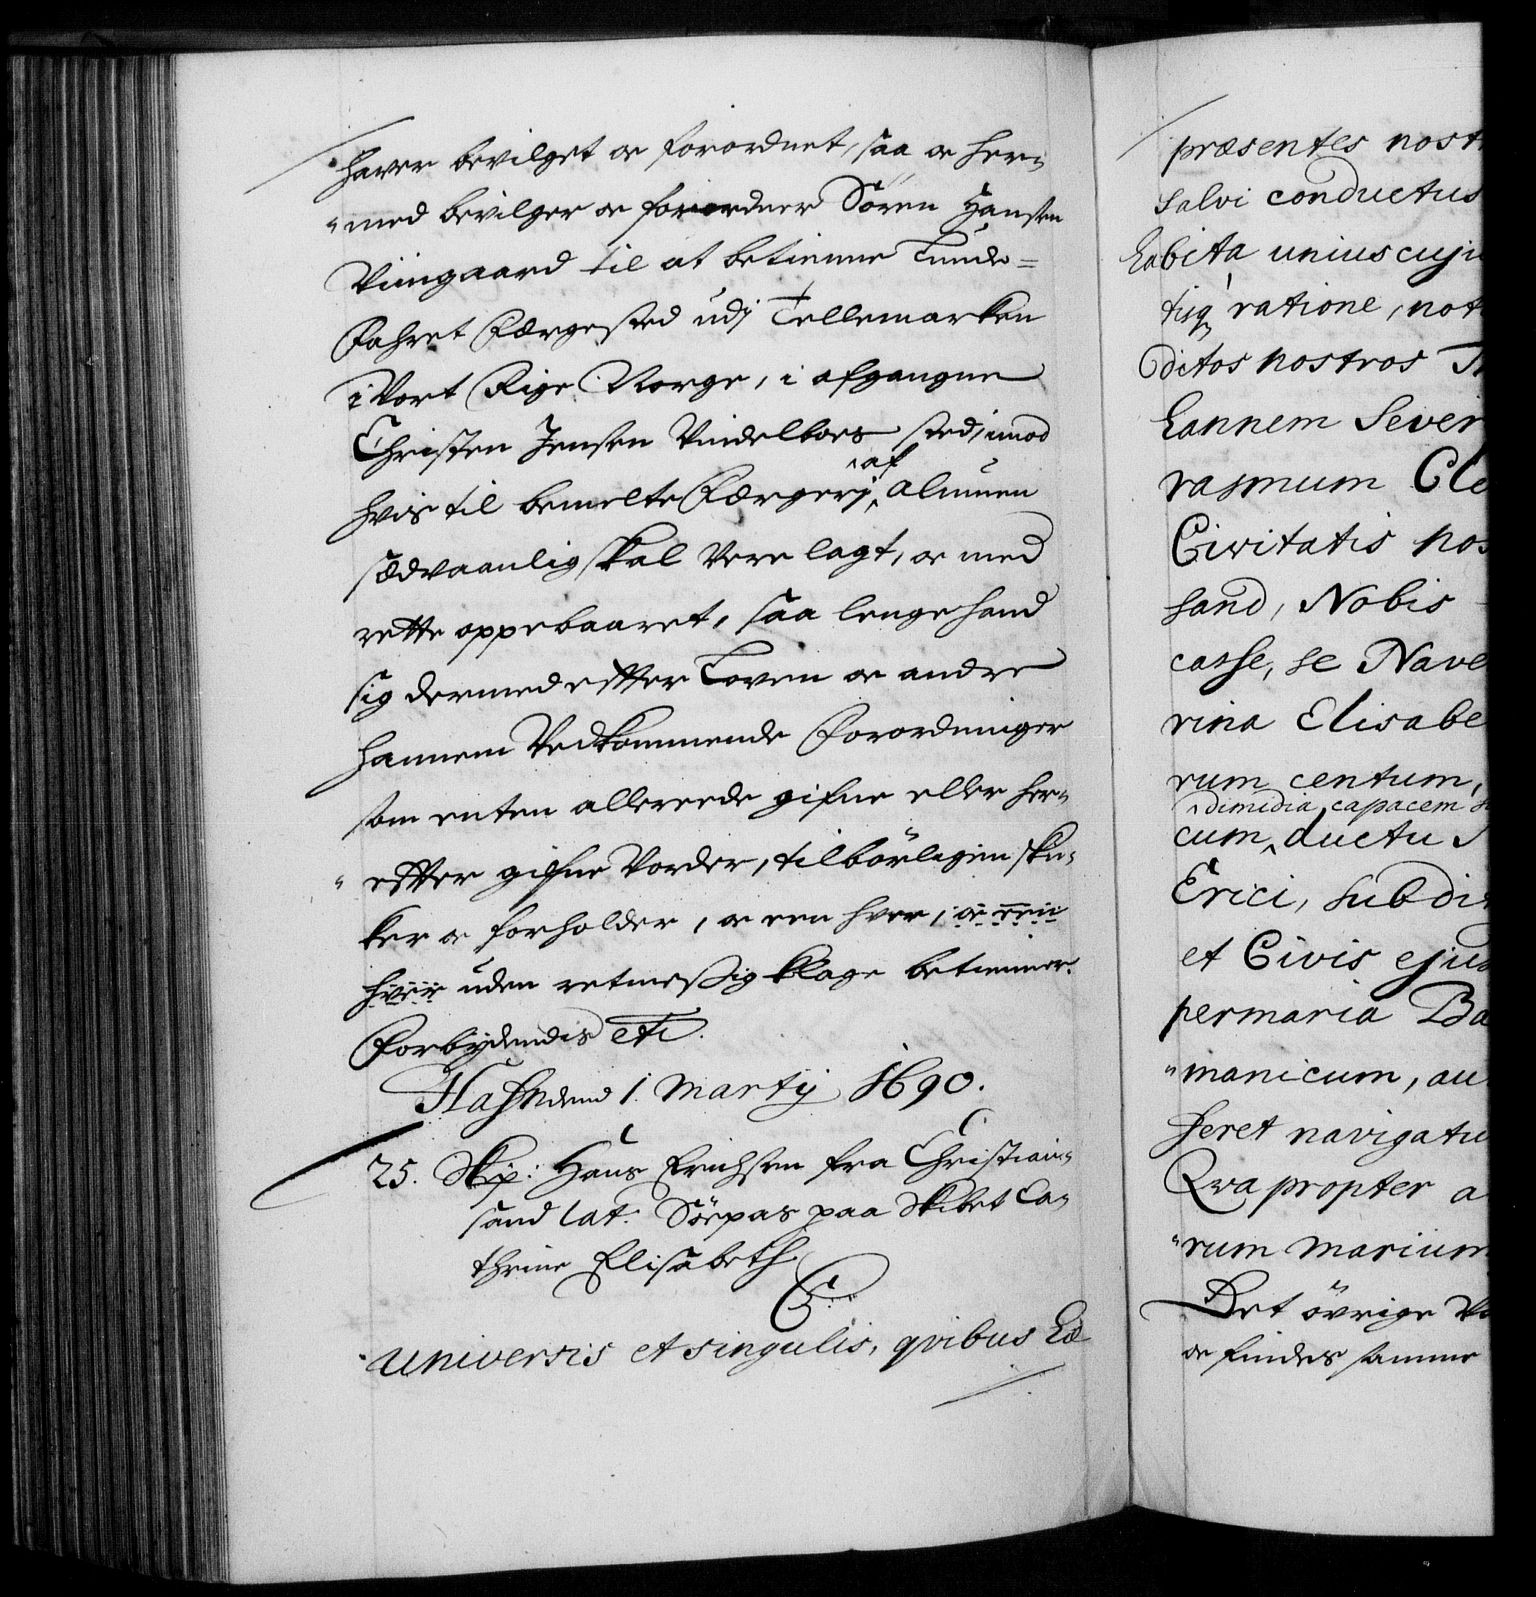 hafver bevilget oc forordnet, saa oc her-
med bevilger oc forordner Sören Hansen
Viingaard til at betienne Sunde-
Fahret Færgested udj Tellemarken
i Vort Rige Norge, i afgangne
Christen Jensen Vindelboes sted, imod
hvis til bemelte Færgerj, af almuen
sædvaanlig skal Vere lagt, oc med
rette oppebaaret, saa lenge hand
sig dermed efter Loven oc andre
hannem Vedkommende Forordninger
som enten allereede gifne eller her-
effter gifne Vorder, tilbörligen skic-
ker oc forholder, oc een hver, oc een
hver uden retmessig klage betienner.
Forbydendis etc.
Hafn dend 1. Martij 1690.
25. Skip: Hans Erichsen fra Christian-
sand lat: Söepas paa Skibet Ca-
thrine Elisabeth
C5.
Universis et singulis, qvibus hæ
præsentes nost
salvi conductus
habita uniuscuju
tisq ratione, not
ditos nostros
hannem Sever
rasmum Cle
Civitatis nos
sand, Nobis
casse, se Nave
rina Elisabe
rum centum,
dimidia capacem
cum ductu
Erici, subdi
et Civis ejus
per maria Ba
manicum, au
seret navigatu
Qvapropter a
rum Marium
Det övrige
oc findes samme